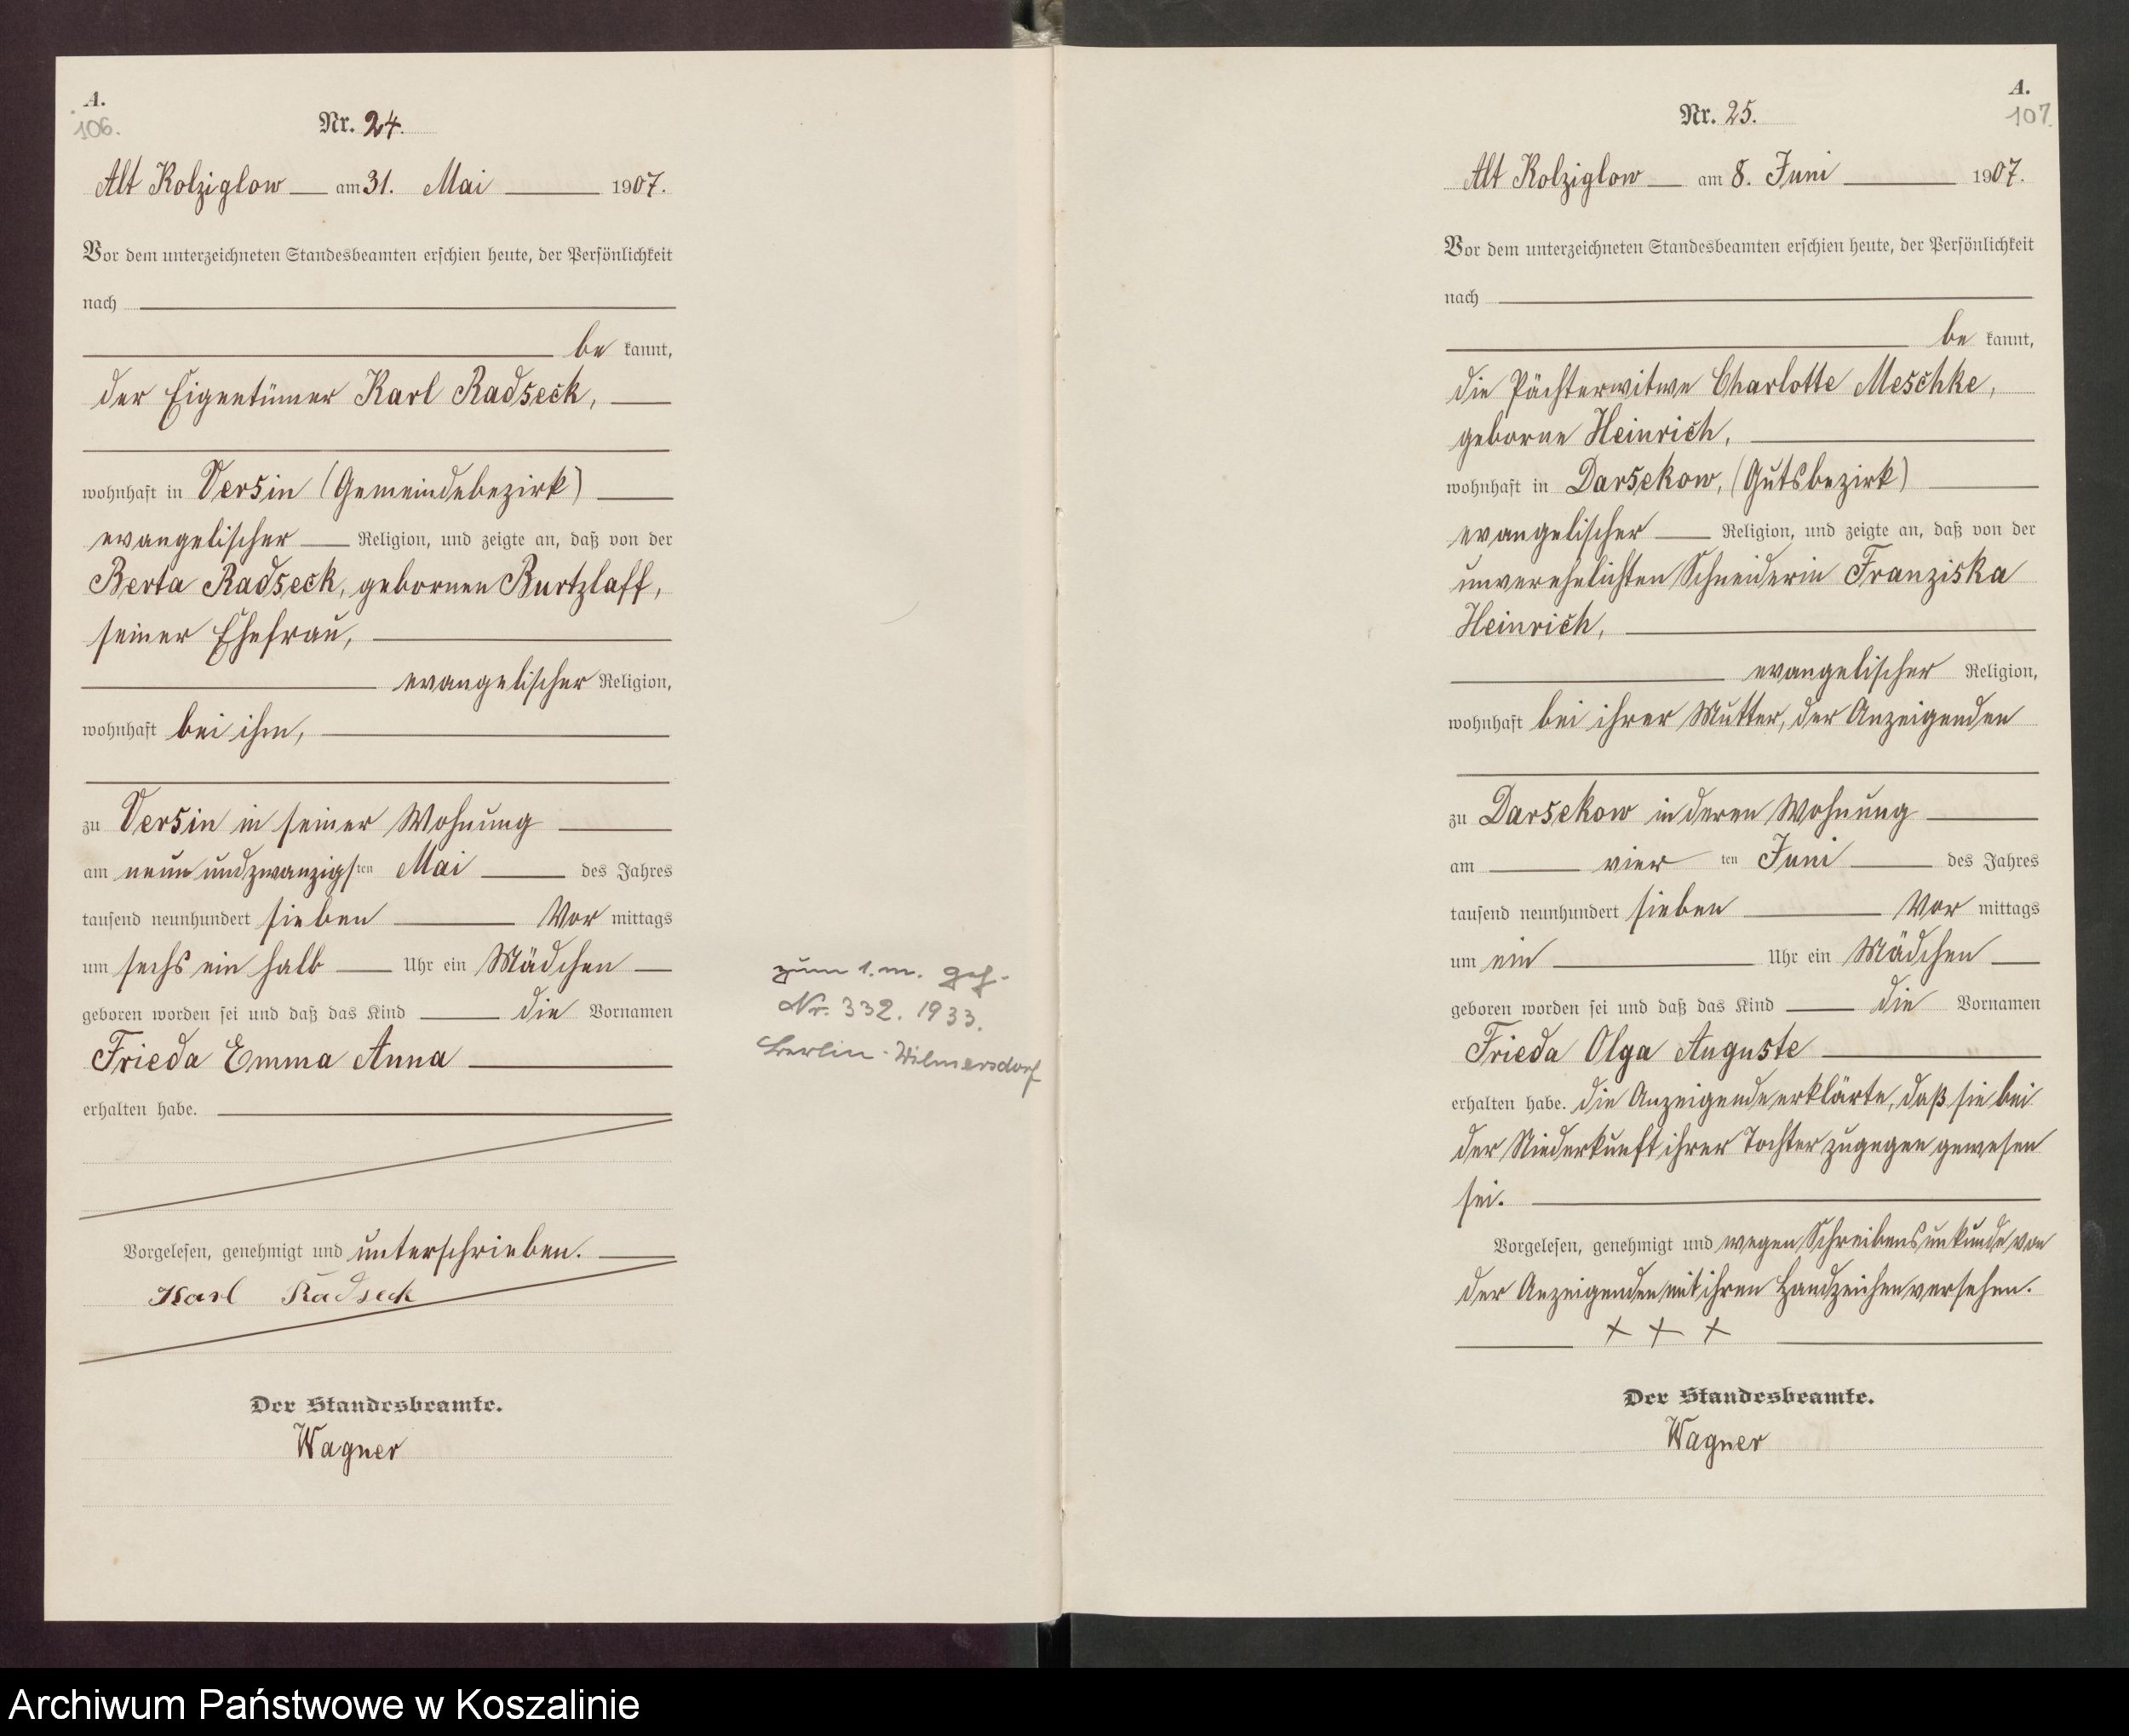 A.
106.
Nr. 24.
Alt Kolziglow am 31. Mai 1907.
Vor dem unterzeichneten Standesbeamten erschien heute, der Persönlichkeit
nach
be kannt,
der Eigentümer Karl Radseck,
wohnhaft in Versin (Gemeindebezirk)
evangelischer Religion, und zeigte an, daß von der
Berta Radseck, gebornen Burtzlaff,
seiner Ehefrau,
evangelischer Religion,
wohnhaft bei ihm,
zu Versin in seiner Wohnung
am neun und zwanzigsten Mai des Jahres
tausend neunhundert sieben Vor mittags
um sechs ein halb Uhr ein Mädchen
geboren worden sei und daß das Kind die Vornamen
Frieda Emma Anna
erhalten habe.
Vorgelesen, genehmigt und unterschrieben.
Karl Radseck
Der Standesbeamte.
Wagner
zum 1. m. geh.
Nr. 332. 1933.
Berlin-Wilmersdorf
A.
107.
Nr. 25.
Alt Kolziglow am 8. Juni 1907.
Vor dem unterzeichneten Standesbeamten erschien heute, der Persönlichkeit
nach
be kannt,
die Pächterwitwe Charlotte Meschke,
geborne Heinrich,
wohnhaft in Darsekow, (Gutsbezirk)
evangelischer Religion, und zeigte an, daß von der
unverehelichten Schneiderin Franziska
Heinrich,
evangelischer Religion,
wohnhaft bei ihrer Mutter, der Anzeigenden
zu Darsekow in deren Wohnung
am vier ten Juni des Jahres
tausend neunhundert sieben Vor mittags
um ein Uhr ein Mädchen
geboren worden sei und daß das Kind die Vornamen
Frieda Olga Auguste
erhalten habe. Die Anzeigende erklärte, daß sie bei
der Niederkunft ihrer Tochter zugegen gewesen
sei.
Vorgelesen, genehmigt und wegen Schreibensunkunde von
der Anzeigenden mit ihren Handzeichen versehen.
+ + +
Der Standesbeamte.
Wagner
Archiwum Państwowe w Koszalinie